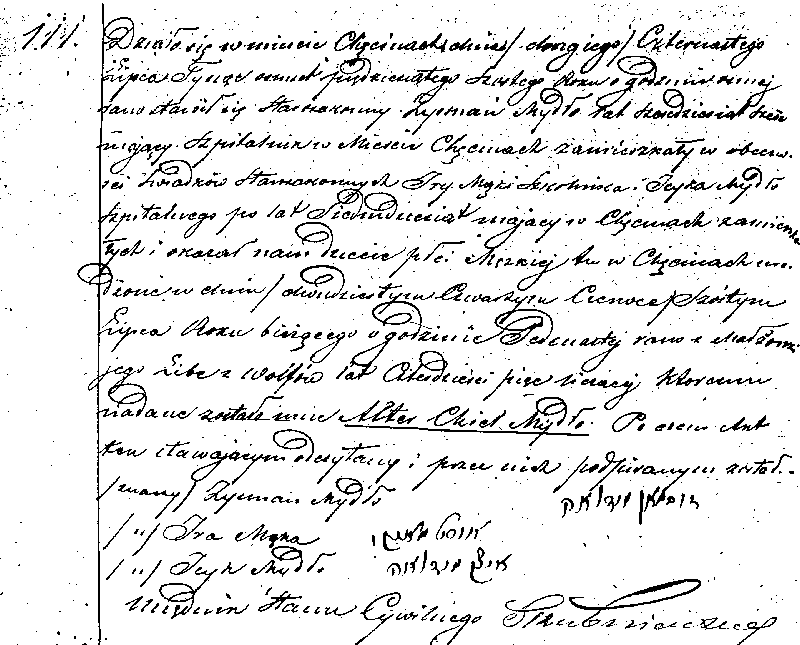 111. Działo się w mieście Chęcinach dnia / drugiego / Czternastego
Lipca Tysiąc ośmset pięćdziesiątego szóstego Roku o godzinie ósmej
rano stawił się Starozakonny Zysman Mydło lat sześćdziesiąt
mający Szpitalnik w Mieście Chęcinach zamieszkały w obecno-
ści świadków Starozakonnych Jry Mąki Szkolnika i Icyka Mydło
Szpitalnego po lat Piećdziesiąt mający w Chęcinach zamieszka-
łych i okazał nam dziecie płci Męzkiej tu w Chęcinach uro-
dzone w dniu / dwudziestym Czwartym Czerwca / Szóstym
Lipca Roku bieżącego o godzinie Jedenastej rano z Małżonki
jego Libe z Wolfów lat Czterdzieści pięć liczącej któremu
nadane zostało imie Alter Chiel Mydło. Po czem Akt
ten stawającym odczytany i przez nich podpisanym został.
/znany/ Zysman Mydło זוסמאן מידלאה
/ " / Jra Mąka
/ " / Icyk Mydło איציק מידלאה
Urzędnik Stanu Cywilnego